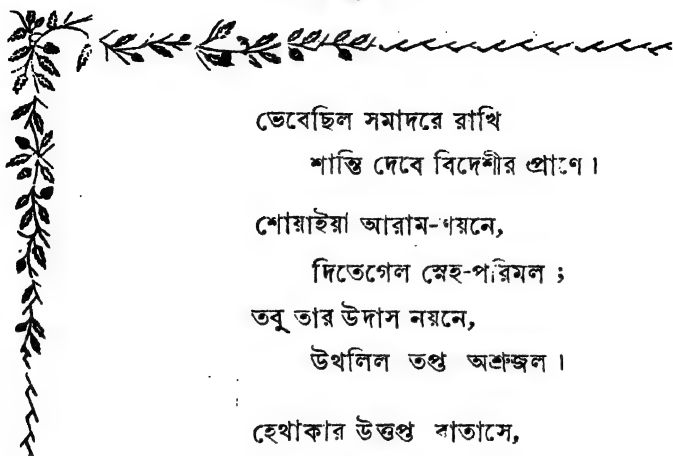 ভেবেছিল সমাদরে রাখি
শান্তি দেবে বিদেশীর প্রাণে।
শোয়াইয়া আরাম-শয়নে,
দিতেগেল স্নেহ-পরিমল;
তবু তার উদাস নয়নে,
উথলিল তপ্ত অশ্রুজল।
হেথাকার উত্তপ্ত বাতাসে,